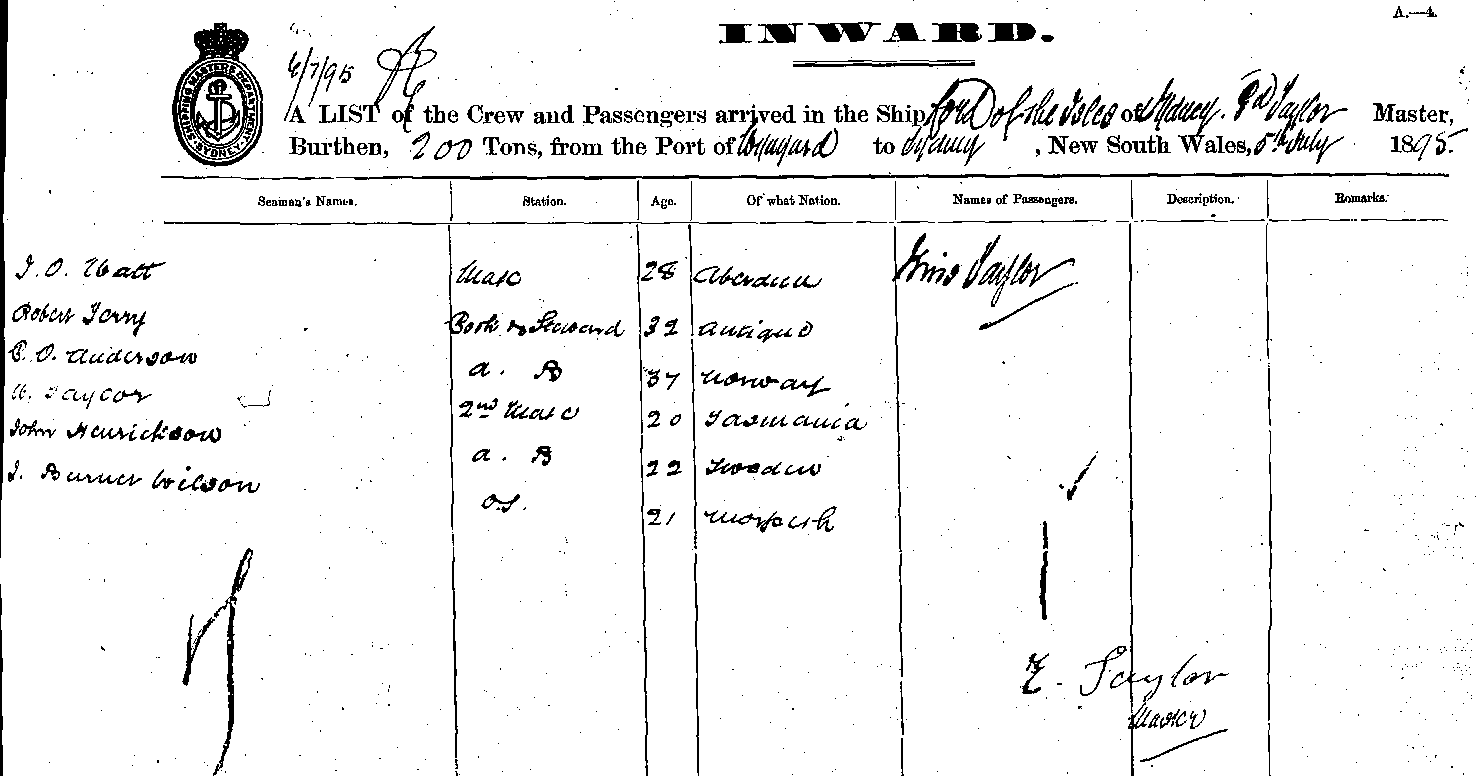 A.—4.
INWARD.
SHIPPING MASTERS DEPARTMENT SYDNEY
6/7/95
A LIST of the Crew and Passengers arrived in the Ship Lord of the Isles of Sydney. Ed Taylor Master,
Burthen, 200 Tons, from the Port of to Sydney, New South Wales, 5th July 1895.
Seaman's Names. Station. Age. Of what Nation. Names of Passengers. Description. Remarks.
J. O. Watt Mate 28 Aberdeen Miss Taylor
Robert Terry Cook & Steward 32 Antigue
C. O. Anderson A. B 37 Norway
W. Taylor 2nd Mate 20 Tasmania
John Henrickson A. B 22 Sweden
J. Burnet Wilson O.S. 21 Morpeth
7
1
E. Taylor
Master